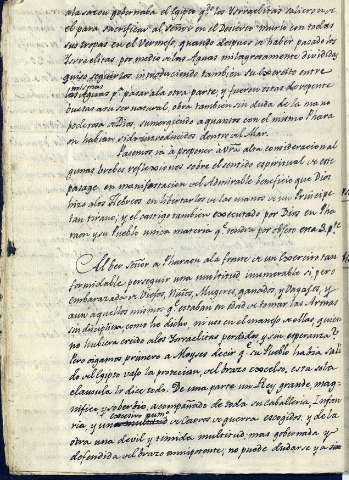 a la sazon gobernaba el Egipto qdo los Ysraelitas salieron de
el para sacrificar al Señor en el Desierto murió con todas
sus tropas en el Vermejo, quando despues de haber pasado los
Ysraelitas por medio de las Aguas milagrosamente divididas
quiso seguirlos introduciendo tambien su Exercito entre
las mismas Aguas pa pasar a la otra parte, y fueron estas de repente
bueltas a su ser natural obra tambien sin duda de la mano
poderosa de Dios, sumergiendo a quantos con el mismo Phara
on habian sido introducidos dentro del Mar.
Pasemos ya a proponer a Vm alta consideracion al
gunas brebes reflexiones sobre el sentido espiritual de este
pasage, en manifestacion del Admirable beneficio que Dios
hizo a los Hebreos en libertarlos de las manos de un Principe
tan tirano; y el castigo tambien executado por Dios en Pha
raon y su Pueblo unica materia qe tendra por objeto esta 2ª pte
Al ver Señor a Pharaon a la frente de un Exercito tan
formidable perseguir una multitud inumerable si pero
embarazada de Viejos, Niños, Mugeres, ganados, y Vagages, y
aun aquellos mismos qe estaban en edad de tomar las Armas
sin disciplina, como he dicho, ni uso en el manejo de ellas, quien
no hubiera creido a los Ysraelitas perdidos y sin esperanza?
Pero oigamos primero a Moyses decir qe su Pueblo habia sali
do de Egipto vajo la proteccion del brazo excelso, esta sola
clausula lo dice todo. De una parte un Rey grande, mag
nifico y soberbio, acompañado de toda su Caballeria, Infan
teria, y un excesivo num. de Carros de guerra escogidos, y de la
otra una devil y timida multitud, mas gobernada y
defendida del brazo omnipotente; no puede dudarse ya